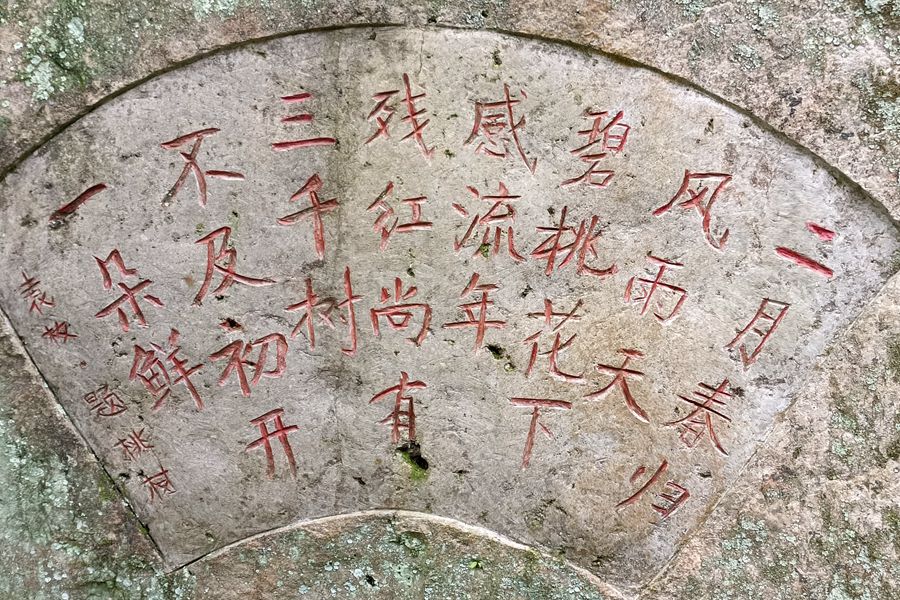 二月春归
风雨天
碧桃花下
感流年
残红尚有
三千树
不及初开
一朵鲜
袁枚 题桃林